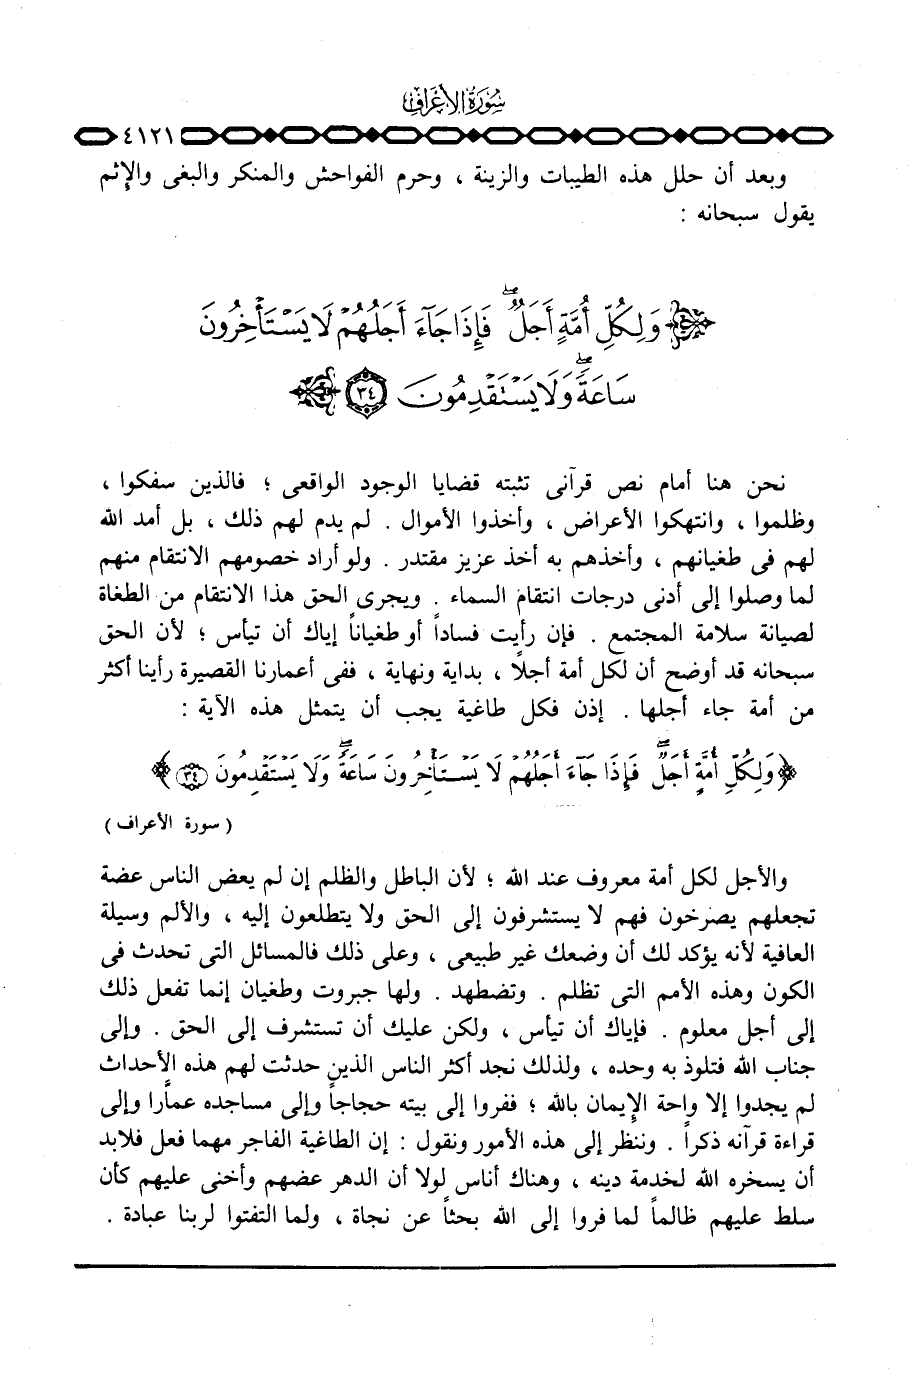 سورة الأعراف
٤١٢١
وبعد أن حلل هذه الطيبات والزينة ، وحرم الفواحش والمنكر والبغى والإثم
يقول سبحانه :
وَلِكُلِّ أُمَّةٍ أَجَلٌ ۖ فَإِذَا جَآءَ أَجَلُهُمْ لَا يَسْتَأْخِرُونَ
سَاعَةً ۖ وَلَا يَسْتَقْدِمُونَ ٣٤
نحن هنا أمام نص قرآنى تثبته قضايا الوجود الواقعى ؛ فالذين سفكوا ،
وظلموا ، وانتهكوا الأعراض ، وأخذوا الأموال . لم يدم لهم ذلك ، بل أمد الله
لهم فى طغيانهم ، وأخذهم به أخذ عزيز مقتدر . ولو أراد خصومهم الانتقام منهم
لما وصلوا إلى أدنى درجات انتقام السماء . ويجرى الحق هذا الانتقام من الطغاة
لصيانة سلامة المجتمع . فإن رأيت فساداً أو طغياناً إياك أن تيأس ؛ لأن الحق
سبحانه قد أوضح أن لكل أمة أجلاً ، بداية ونهاية ، ففى أعمارنا القصيرة رأينا أكثر
من أمة جاء أجلها . إذن فكل طاغية يجب أن يتمثل هذه الآية :
﴿ وَلِكُلِّ أُمَّةٍ أَجَلٌ ۖ فَإِذَا جَآءَ أَجَلُهُمْ لَا يَسْتَأْخِرُونَ سَاعَةً ۖ وَلَا يَسْتَقْدِمُونَ ٣٤ ﴾
( سورة الأعراف )
والأجل لكل أمة معروف عند الله ؛ لأن الباطل والظلم إن لم يعض الناس عضة
تجعلهم يصرخون فهم لا يستشرفون إلى الحق ولا يتطلعون إليه ، والألم وسيلة
العافية لأنه يؤكد لك أن وضعك غير طبيعى ، وعلى ذلك فالمسائل التى تحدث فى
الكون وهذه الأمم التى تظلم . وتضطهد . ولها جبروت وطغيان إنما تفعل ذلك
إلى أجل معلوم . فإياك أن تيأس ، ولكن عليك أن تستشرف إلى الحق . وإلى
جناب الله فتلوذ به وحده ، ولذلك نجد أكثر الناس الذين حدثت لهم هذه الأحداث
لم يجدوا إلا واحة الإيمان بالله ؛ ففروا إلى بيته حجاجاً وإلى مساجده عماراً وإلى
قراءة قرآنه ذكراً . وننظر إلى هذه الأمور ونقول : إن الطاغية الفاجر مهما فعل فلابد
أن يسخره الله لخدمة دينه ، وهناك أناس لولا أن الدهر عضهم وأخنى عليهم كأن
سلط عليهم ظالماً لما فروا إلى الله بحثاً عن نجاة ، ولما التفتوا لربنا عبادة .